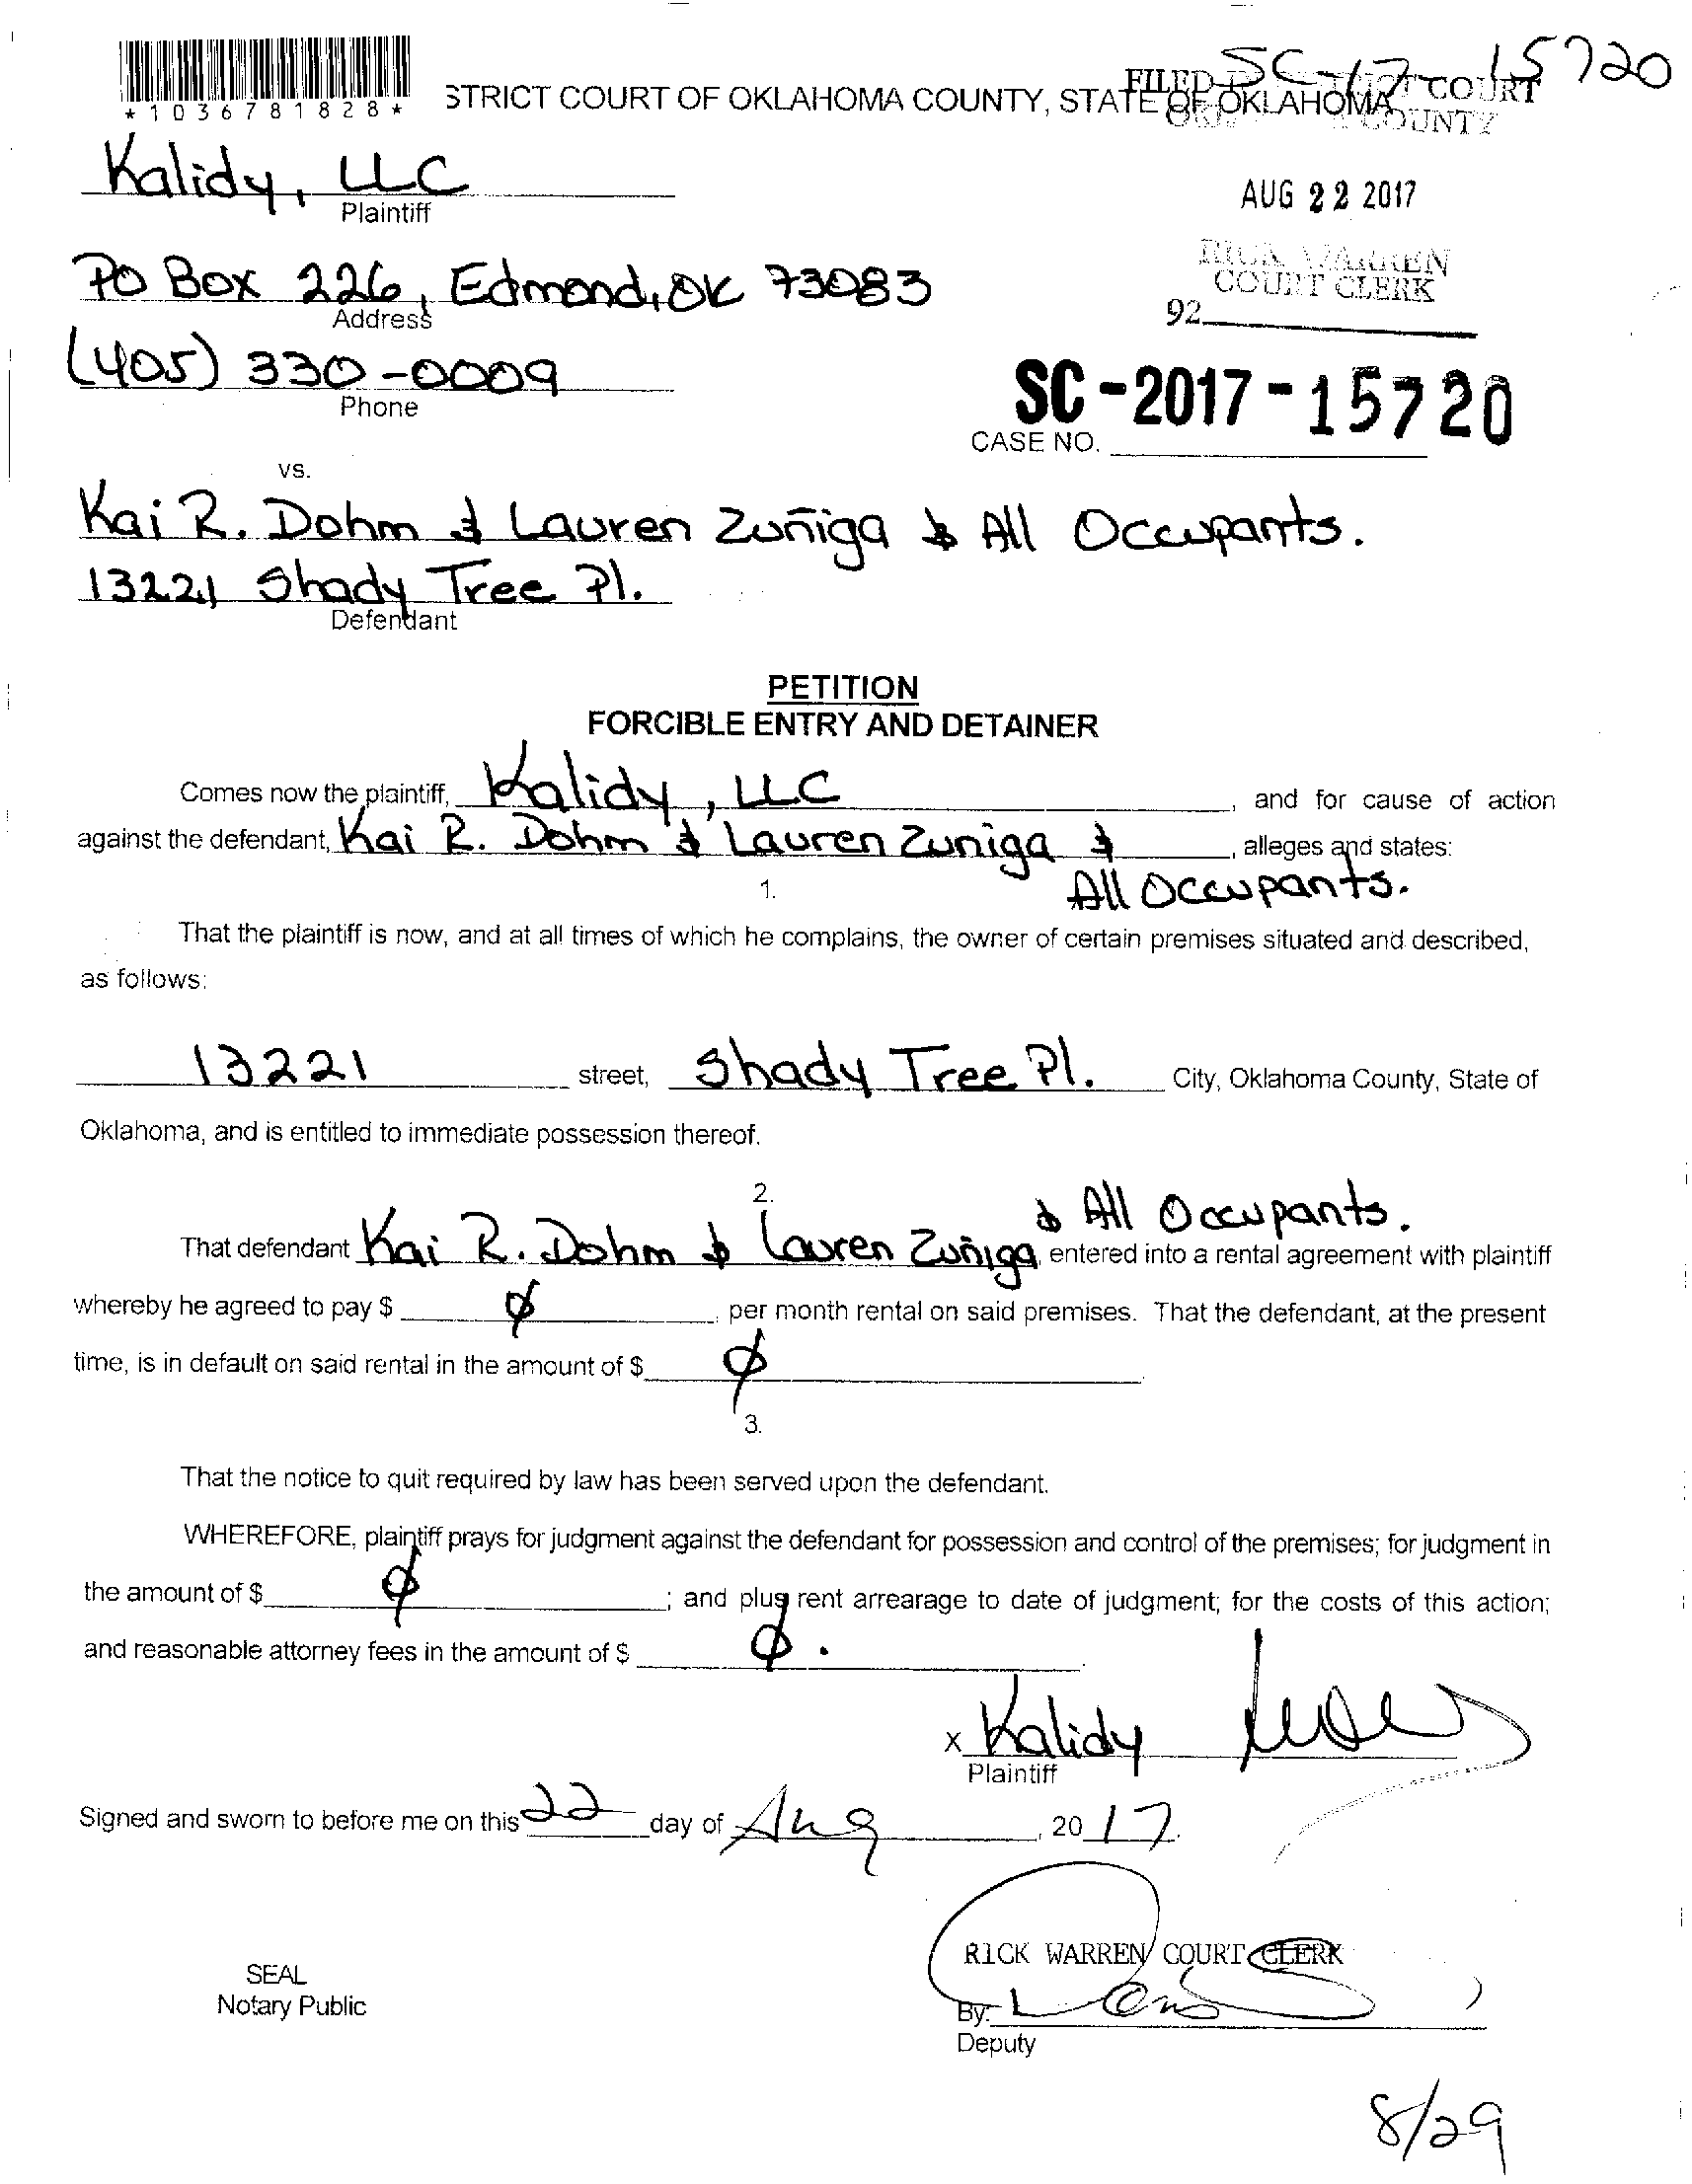 SC-17-15720
*1036781828*
STRICT COURT OF OKLAHOMA COUNTY, STATE OF OKLAHOMA
FILED COURT
COUNTY
Kalidy, LLC
Plaintiff
AUG 22 2017
RICK WARREN
COURT CLERK
92
PO Box 226, Edmond, OK 73083
Address
(405) 330-0009
Phone
SC-2017-15720
CASE NO.
vs.
Kai R. Dohm & Lauren Zuñiga & All Occupants.
13221 Shady Tree Pl.
Defendant
PETITION
FORCIBLE ENTRY AND DETAINER
Comes now the plaintiff, Kalidy, LLC, and for cause of action
against the defendant, Kai R. Dohm & Lauren Zuniga &, alleges and states:
All Occupants.
1.
That the plaintiff is now, and at all times of which he complains, the owner of certain premises situated and described,
as follows:
13221 street, Shady Tree Pl. City, Oklahoma County, State of
Oklahoma, and is entitled to immediate possession thereof.
2.
& All Occupants.
That defendant Kai R. Dohm & Lauren Zuñiga, entered into a rental agreement with plaintiff
whereby he agreed to pay $ ∅, per month rental on said premises. That the defendant, at the present
time, is in default on said rental in the amount of $ ∅
3.
That the notice to quit required by law has been served upon the defendant.
WHEREFORE, plaintiff prays for judgment against the defendant for possession and control of the premises; for judgment in
the amount of $ ∅; and plus rent arrearage to date of judgment; for the costs of this action;
and reasonable attorney fees in the amount of $ ∅.
x Kalidy
Plaintiff
Signed and sworn to before me on this 22 day of Aug, 2017.
RICK WARREN COURT CLERK
SEAL
Notary Public
By:
Deputy
8/29